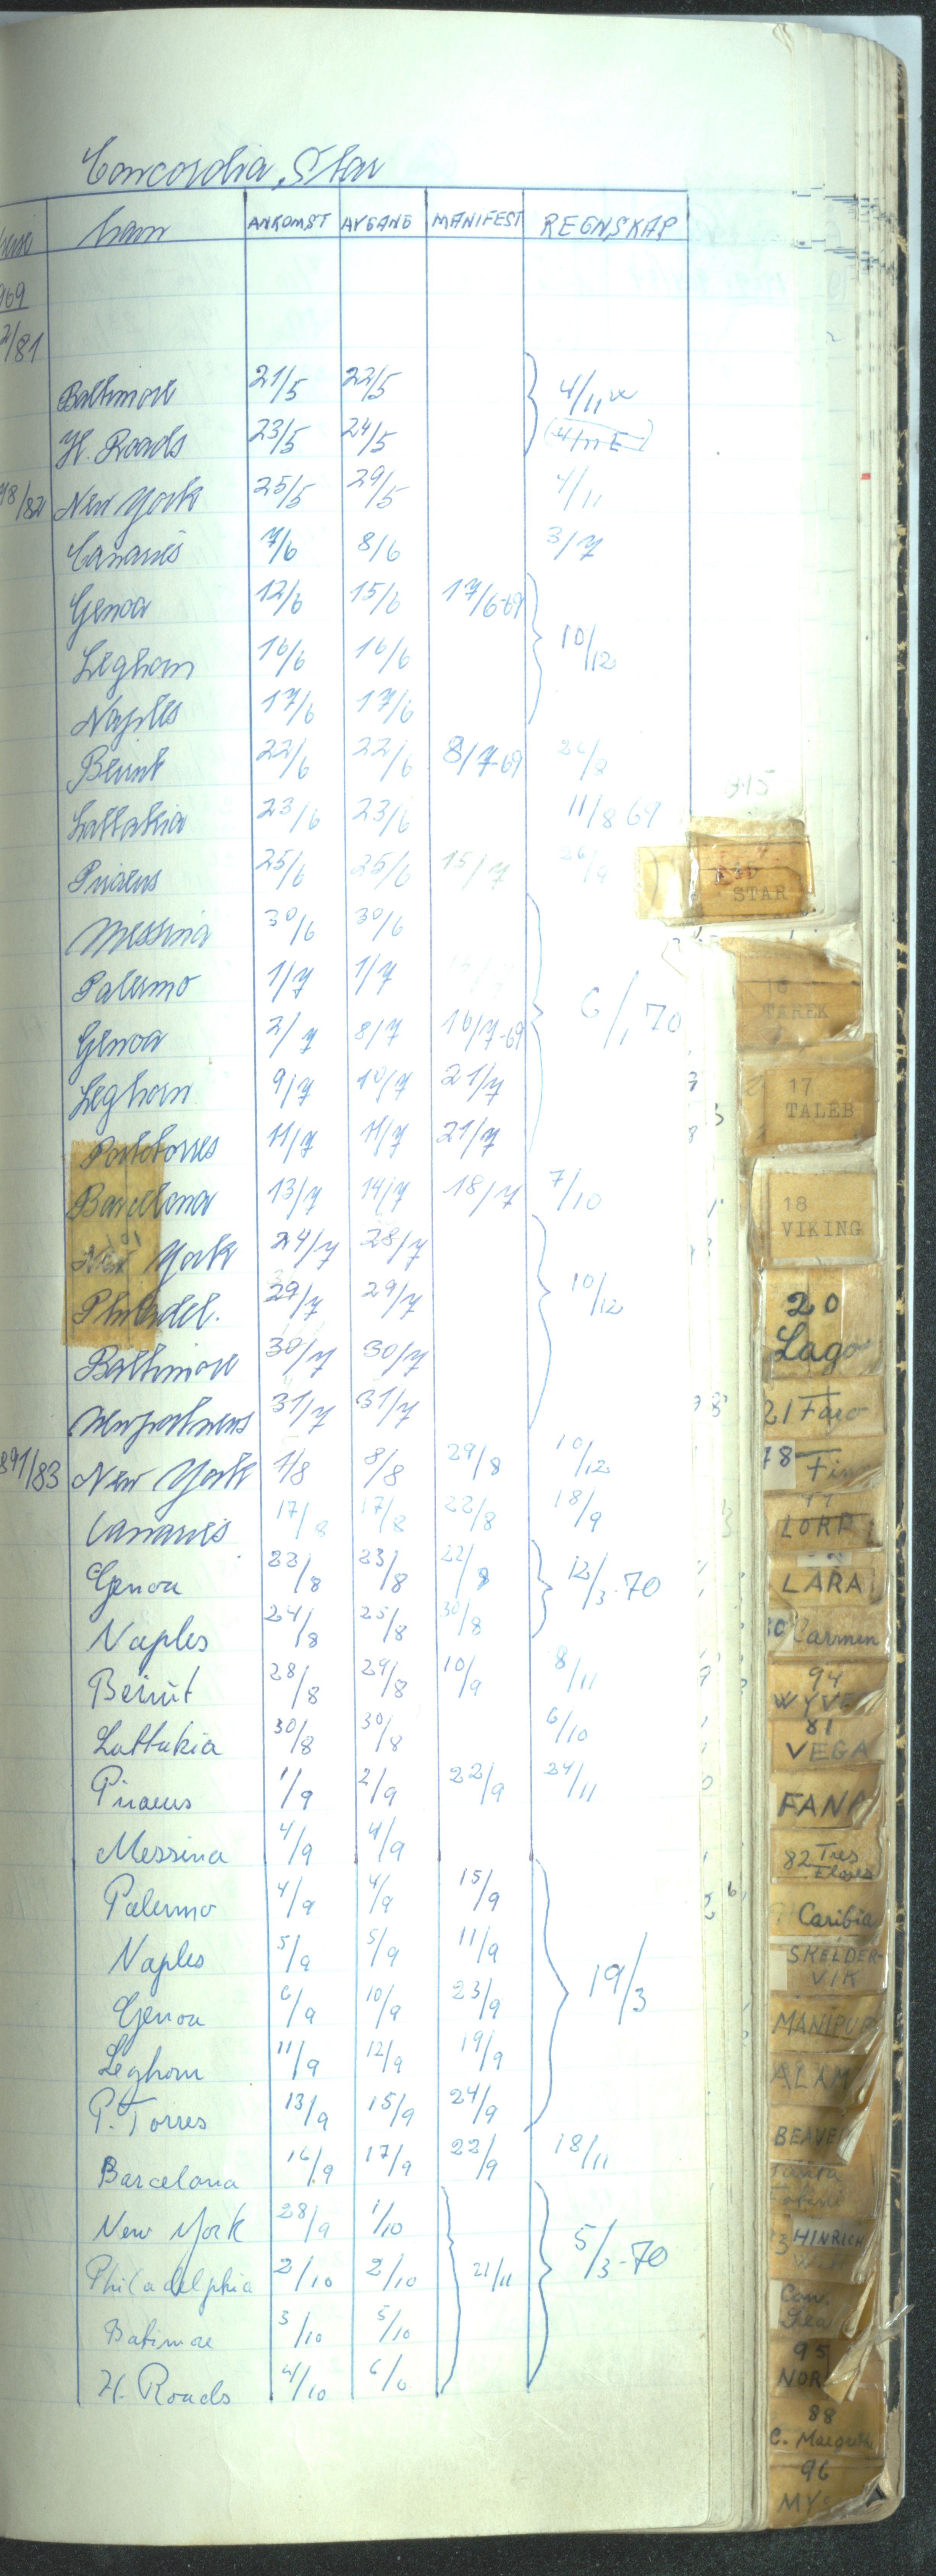 Concordia Star
havn ANKOMST AVGANG MANIFEST REGNSKAP
969
2/81
Baltimore 21/5 22/5 4/11
H. Roads 23/5 24/5 4/11 E
48/82 New York 25/5 29/5 4/11
Canaries 7/6 8/6 3/7
Genoa 12/6 15/6 17/6-69
Leghorn 16/6 16/6 10/12
Naples 17/6 17/6
Beirut 22/6 22/6 8/7-69 26/8
Lattakia 23/6 23/6 11/8 69
Piraeus 25/6 25/6 15/7 26/9
Messina 30/6 30/6
Palermo 1/7 1/7
Genoa 2/7 8/7 16/7-69 6/1 70
Leghorn 9/7 10/7 21/7
Portotorres 11/7 11/7 21/7
Barcelona 13/7 14/7 18/7 7/10
New York 24/7 28/7
Philadel. 29/7 29/7 10/12
Baltimore 30/7 30/7
Newportnews 31/7 31/7
891/83 New York 1/8 8/8 29/8 10/12
Canaries 17/8 17/8 22/8 18/9
Genoa 23/8 23/8 22/8 12/3-70
Naples 24/8 25/8 30/8
Beirut 28/8 29/8 10/9 8/11
Lattakia 30/8 30/8 6/10
Piraeus 1/9 2/9 22/9 24/11
Messina 4/9 4/9
Palermo 4/9 4/9 15/9
Naples 5/9 5/9 11/9
Genoa 6/9 10/9 23/9 19/3
Leghorn 11/9 12/9 19/9
P. Torres 13/9 15/9 24/9
Barcelona 16/9 17/9 22/9 18/11
New York 28/9 1/10
Philadelphia 2/10 2/10 21/11 5/3-70
Batimae 3/10 5/10
H. Roads 4/10 6/6
315
STAR
16
TAREK
17
TALEB
18
VIKING
20
Lago
21 Faro
78 Finn
LORD
LARA
Carmen
94
WYVE
81
VEGA
FANA
82 Tres
Caribia
SKELDER-
VIK
MANIPUR
ALAM
BEAVE
HINRICH
Con.
95
NOR
88
C. Margrethe
96
MYS